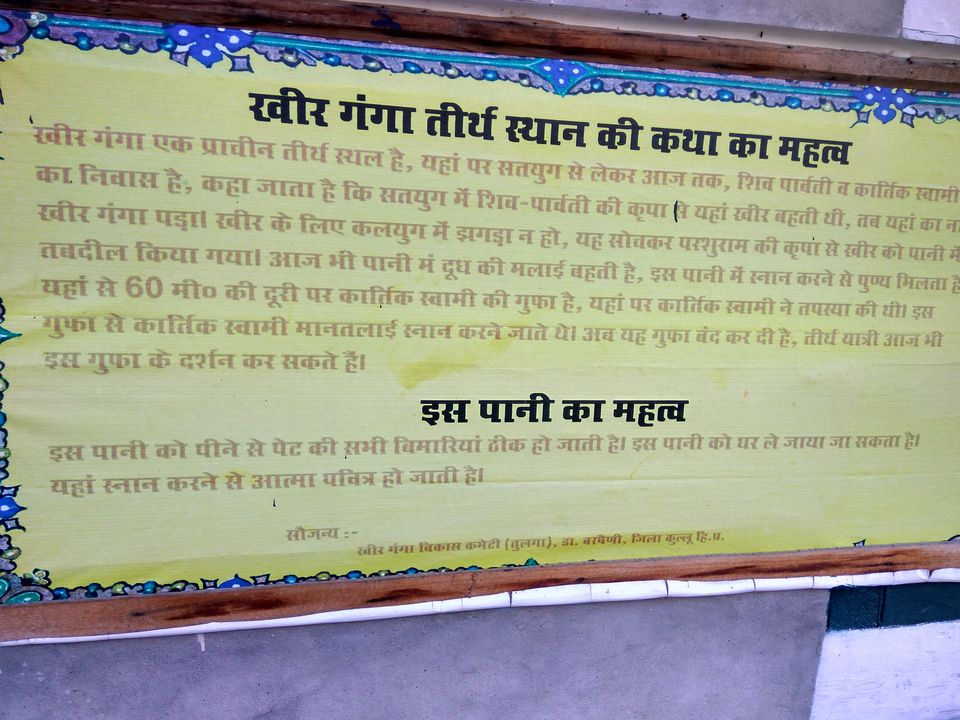 खीर गंगा तीर्थ स्थान की कथा का महत्व
खीर गंगा एक प्राचीन तीर्थ स्थल है, यहां पर सतयुग से लेकर आज तक, शिव पार्वती व कार्तिक स्वामी
का निवास है, कहा जाता है कि सतयुग में शिव-पार्वती की कृपा से यहां खीर बहती थी, तब यहां का ना
खीर गंगा पड़ा। खीर के लिए कलयुग में झगड़ा न हो, यह सोचकर परशुराम की कृपा से खीर को पानी में
तबदील किया गया। आज भी पानी मं दूध की मलाई बहती है, इस पानी में स्नान करने से पुण्य मिलता है
यहां से 60 मी० की दूरी पर कार्तिक स्वामी की गुफा है, यहां पर कार्तिक स्वामी ने तपस्या की थी। इस
गुफा से कार्तिक स्वामी मानतलाई स्नान करने जाते थे। अब यह गुफा बंद कर दी है, तीर्थ यात्री आज भी
इस गुफा के दर्शन कर सकते हैं।
इस पानी का महत्व
इस पानी को पीने से पेट की सभी बिमारियां ठीक हो जाती है। इस पानी को घर ले जाया जा सकता है।
यहां स्नान करने से आत्मा पवित्र हो जाती है।
सौजन्य :-
खीर गंगा विकास कमेटी (तुलगा), डा. बरषैणी, जिला कुल्लू हि.प.